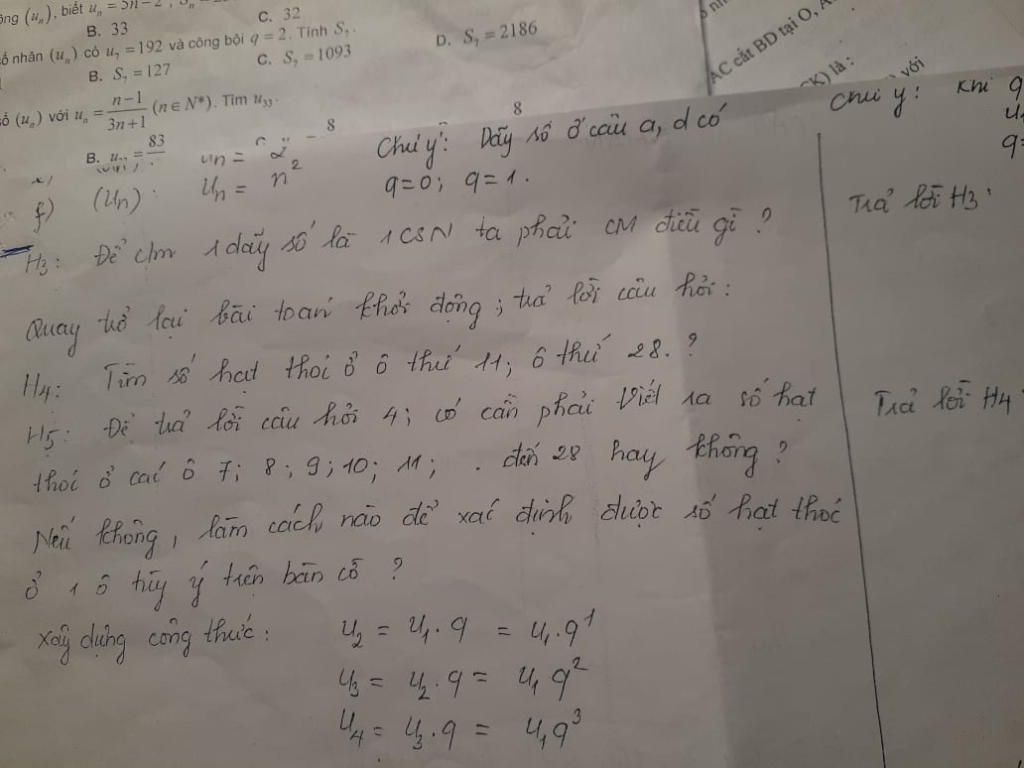 ộng (uₙ), biết uₙ = 5n − 2
B. 33
C. 32
ố nhân (uₙ) có u₇ = 192 và công bội q = 2. Tính S₇.
B. S₇ = 127
C. S₇ = 1093
D. S₇ = 2186
số (uₙ) với uₙ = (n−1)/(3n+1) (n ∈ N*). Tìm u₃₃.
8
8
B. 83
AC cắt BD tại O, A
CK) là :
với
Chú ý: Dãy số ở câu a, d có
q=0; q=1.
f) (Un): Un = n²
H3: Để cm 1 dãy số là 1 CSN ta phải CM điều gì ?
Quay trở lại bài toán khởi động; trả lời câu hỏi:
H4: Tìm số hạt thóc ở ô thứ 11; ô thứ 28. ?
H5: Để trả lời câu hỏi 4; có cần phải viết ra số hạt
thóc ở các ô 7; 8; 9; 10; 11; . đến 28 hay không ?
Nếu không, làm cách nào để xác định được số hạt thóc
ở 1 ô tùy ý trên bàn cờ ?
Xây dựng công thức: u₂ = u₁.q = u₁.q¹
u₃ = u₂.q = u₁q²
u₄ = u₃.q = u₁q³
Chú ý: Khi q
q=
Trả lời H3:
Trả lời H4